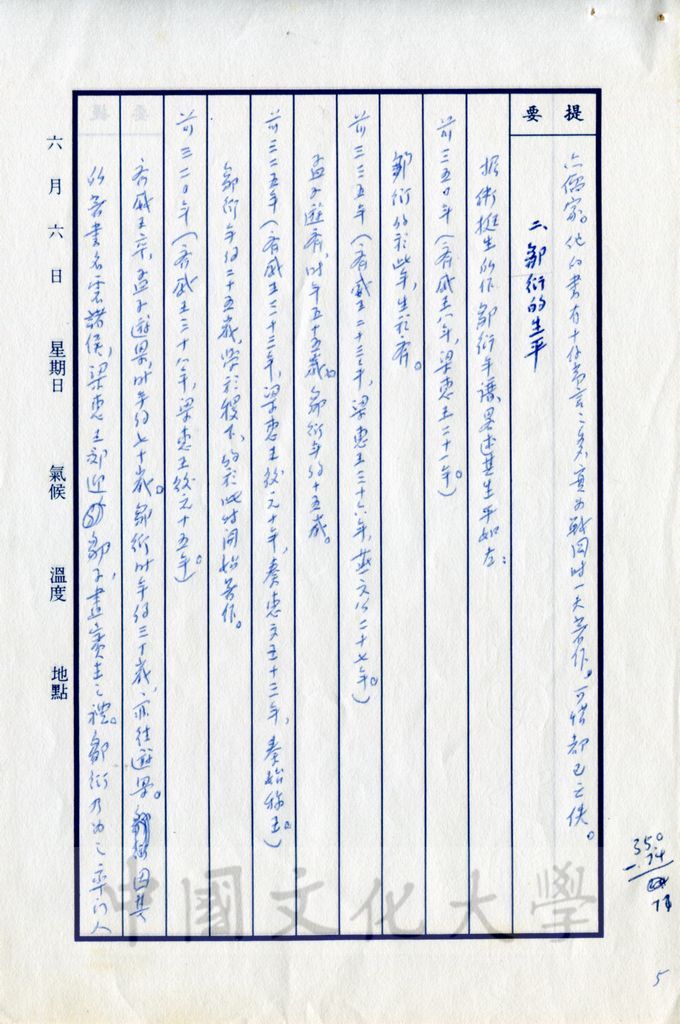 提要
六儒家。他的書有十餘萬言之多，實為戰國時一大著作。可惜都已亡佚。
二、鄒衍的生平
據衛挺生所作鄒衍年譜，略述其生平如左：
前三五〇年（齊威王八年，梁惠王二十一年。）
鄒衍約於此年，生於齊。
前三三五年（齊威王二十三年，梁惠王三十六年，燕文公二十七年。）
孟子遊齊，時年五十五歲。鄒衍年約十五歲。
前三二五年（齊威王三十三年，梁惠王後元十年，秦惠文王十三年，秦始稱王。）
鄒衍年約二十五歲，學於稷下，約於此時開始著作。
前三二〇年（齊威王三十八年，梁惠王後元十五年）。
齊威王卒，孟子遊梁，時年約七十歲。鄒衍時年約三十歲，亦往遊梁。因其
所著書名震諸侯，梁惠王郊迎鄒子，盡賓主之禮。鄒衍乃為之
六月六日 星期日 氣候 溫度 地點
350
74
5
中國文化大學